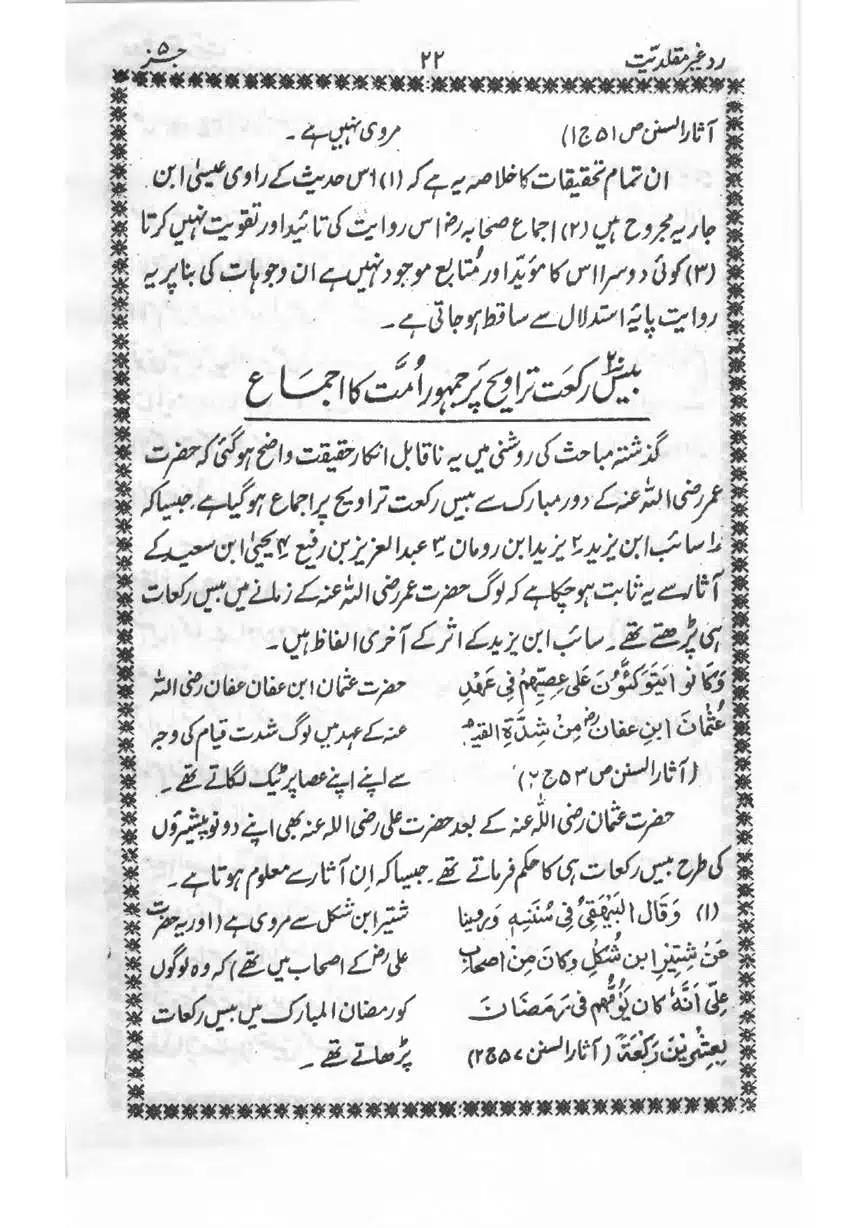 رد غیر مقلدیت ۲۲ جز ۵
آثار السنن ص ۵۱ ج ۱) مروی نہیں ہے ۔
ان تمام تحقیقات کا خلاصہ یہ ہے کہ (۱) اس حدیث کے راوی عیسیٰ ابن
جاریہ مجروح ہیں (۲) اجماع صحابہ رضہ اس روایت کی تائید اور تقویت نہیں کرتا
(۳) کوئی دوسرا اس کا مؤید اور مُتابع موجود نہیں ہے ان وجوہات کی بنا پر یہ
روایت پایۂ استدلال سے ساقط ہو جاتی ہے ۔
بیس۲۰ رکعت تراویح پر جمہور اُمّت کا اجماع
گذشتہ مباحث کی روشنی میں یہ ناقابل انکار حقیقت واضح ہو گئی کہ حضرت
عمر رضی اللہ عنہ کے دور مبارک سے بیس رکعت تراویح پر اجماع ہو گیا ہے۔ جیسا کہ
۱ سائب ابن یزید ۲ یزید ابن رومان ۳ عبد العزیز بن رفیع ۴ یحییٰ ابن سعید کے
آثار سے یہ ثابت ہو چکا ہے کہ لوگ حضرت عمر رضی اللہ عنہ کے زمانے میں بیس رکعات
ہی پڑھتے تھے ۔ سائب ابن یزید کے اثر کے آخری الفاظ ہیں ۔
وَکَانُوا یَتَوَکَّئُوْنَ عَلیٰ عِصِیِّهِمْ فِی عَهْدِ
عُثْمَانَ ابنِ عفان رضہ مِنْ شِدَّةِ القیام
(آثار السنن ص ۵۳ ج ۲)
حضرت عثمان ابن عفان عفان رضی اللہ
عنہ کے عہد میں لوگ شدت قیام کی وجہ
سے اپنے اپنے عصا پر ٹیک لگاتے تھے ۔
حضرت عثمان رضی اللہ عنہ کے بعد حضرت علی رضی اللہ عنہ بھی اپنے دونو پیشیرؤں
کی طرح بیس رکعات ہی کا حکم فرماتے تھے۔ جیسا کہ اِن آثار سے معلوم ہوتا ہے ۔
(۱) وَقَال البَیْهَقِیُّ فِی سُنَنِهٖ وَروینا
عَنْ شتیر ابن شُکل وکَانَ مِنْ اصحاب
عِلیّ اَنَّهٗ کان یَؤُمُّهُم فی رَمَضَانَ
بِعِشْرِیْنَ رَکْعَةً (آثار السنن ۵۷ ج ۲)
شتیر ابن شکل سے مروی ہے (اور یہ حضرت
علی رضہ کے اصحاب میں تھے) کہ وہ لوگوں
کو رمضان المبارک میں بیس رکعات
پڑھاتے تھے ۔